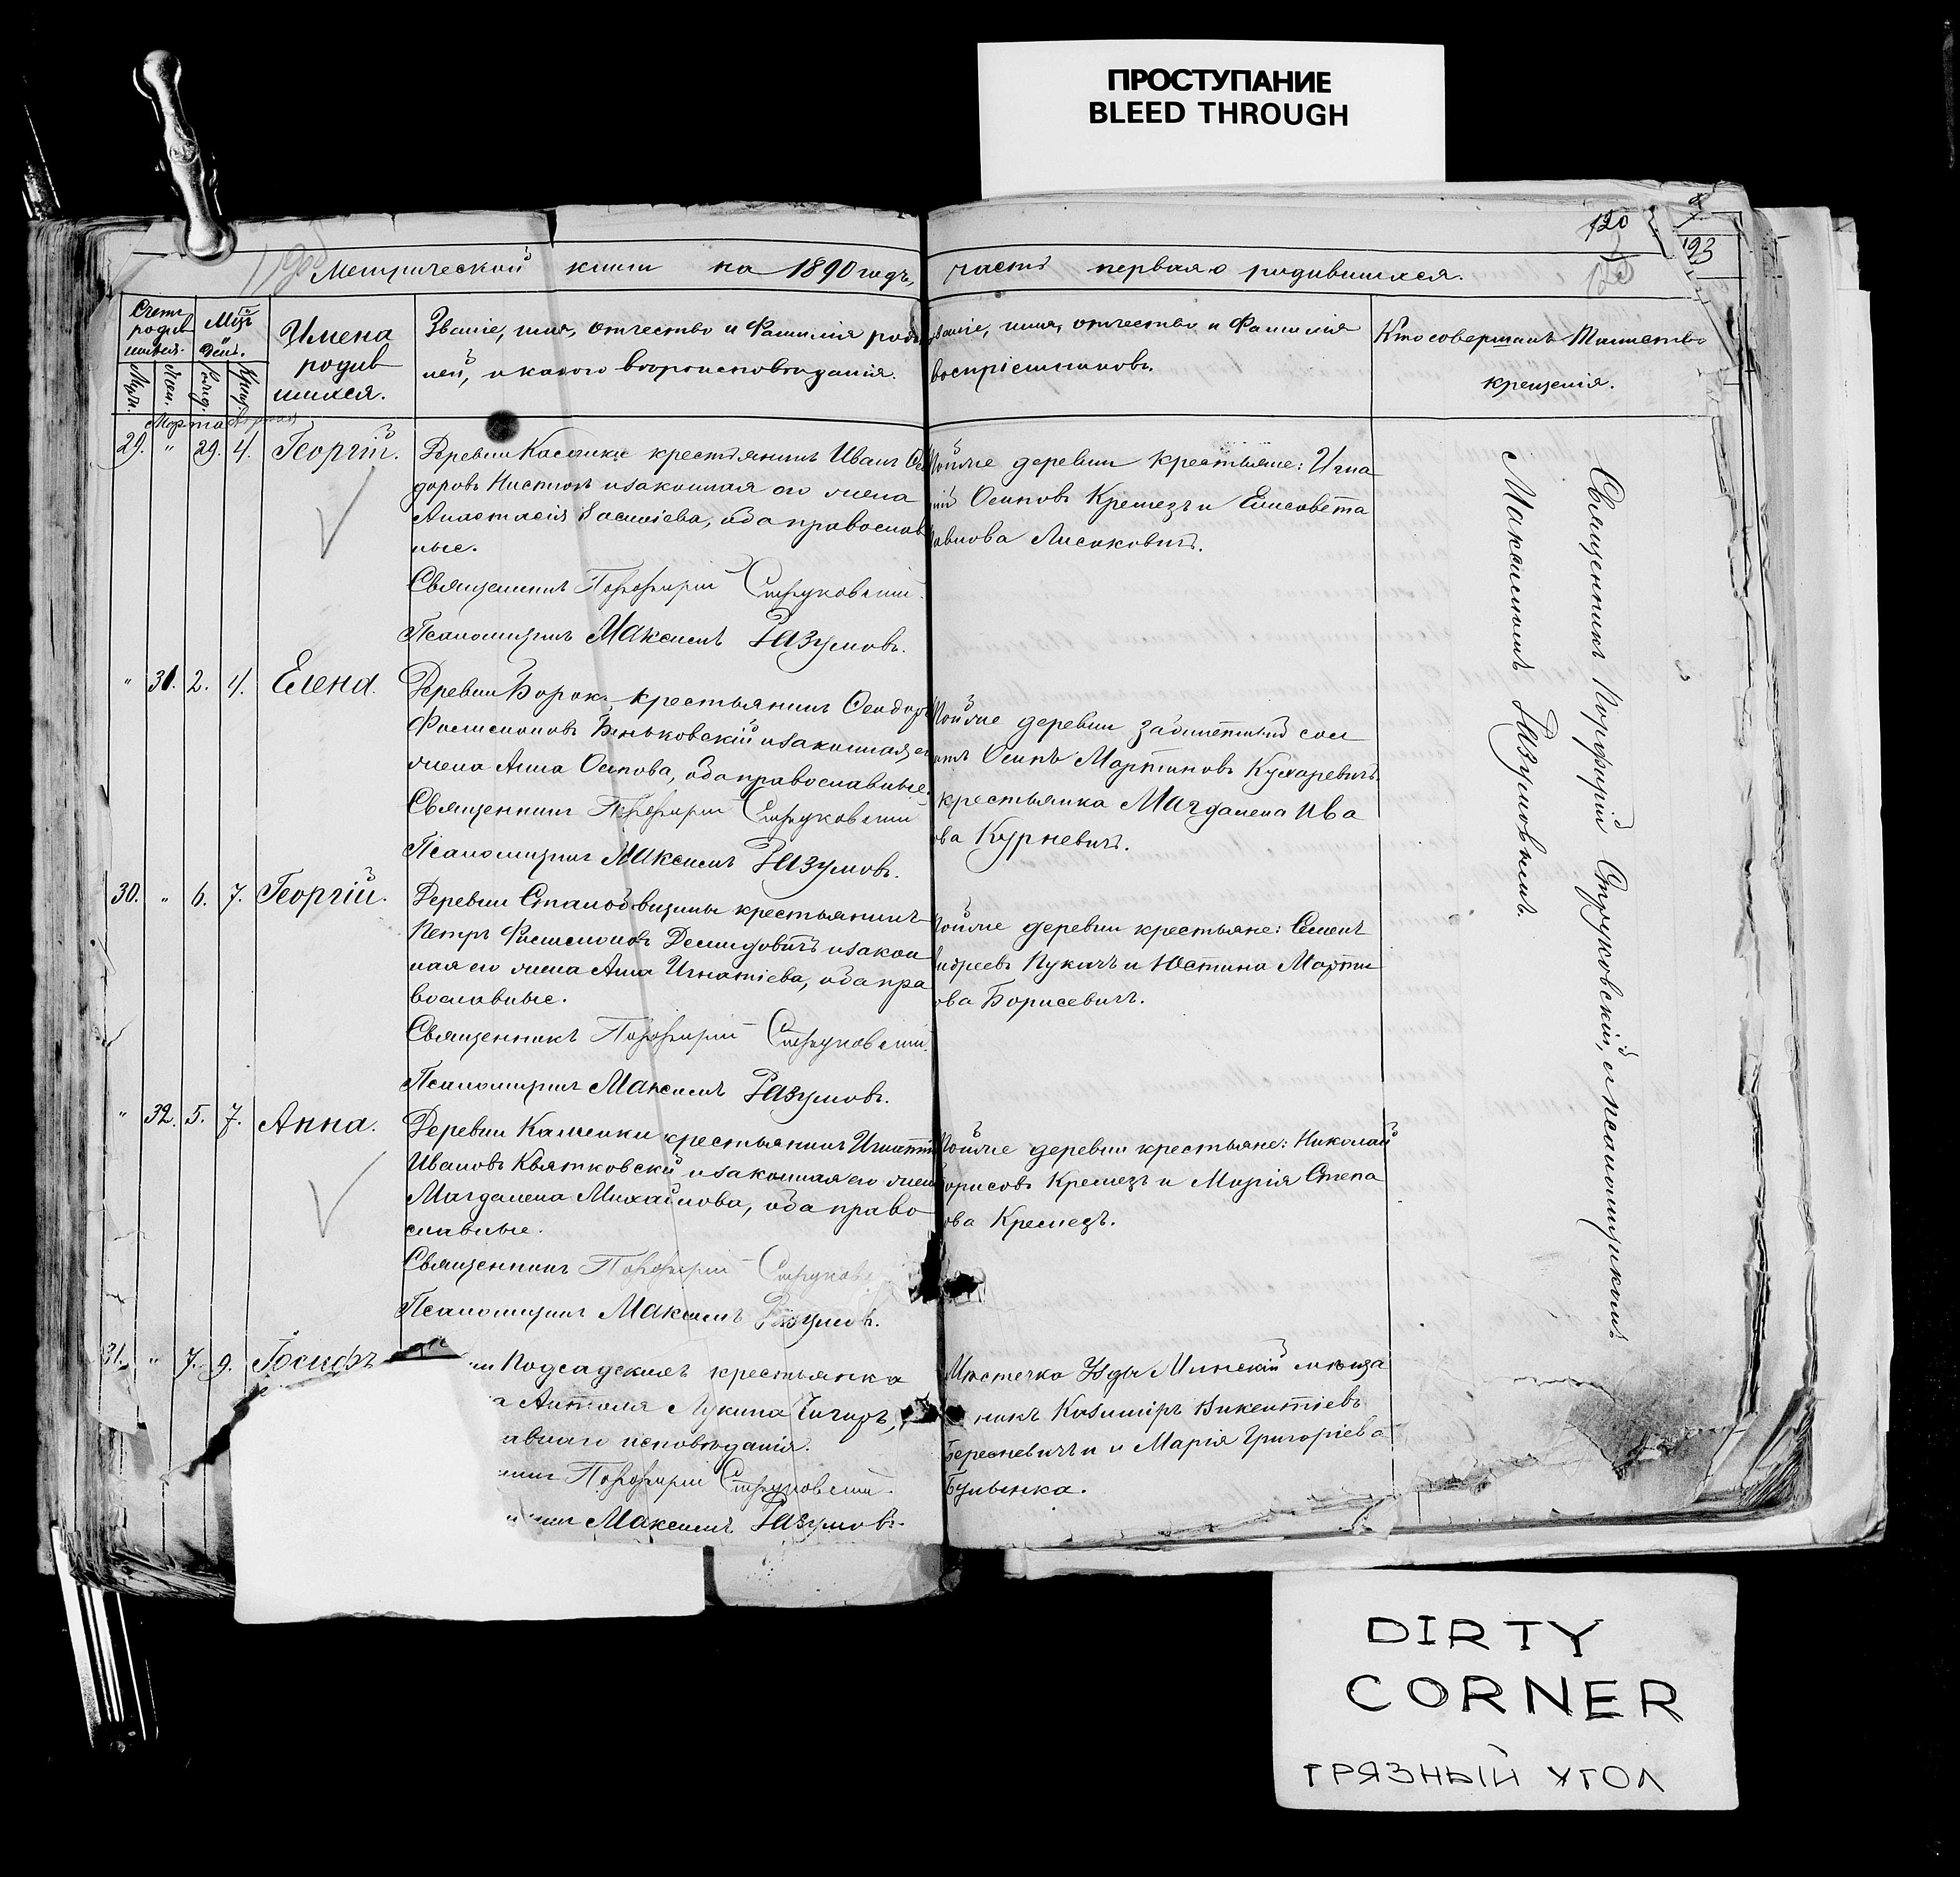 ПРОСТУПАНИЕ
BLEED THROUGH
120
193
Метрической книги на 1890 годъ,
часть первая о родившихся.
Счетъ родив шихся.
Мѣц. и день.
Имена родив шихся.
Званіе, имя, отчество и Фамилія роди
лей, и какого вѣроисповѣданія.
Званіе, имя, отчество и Фамилія
воспріемниковъ.
Кто совершалъ Таинство
крещенія.
Марта
29. " 29. 4. Георгій.
Деревни крестьянинъ Иванъ
доровъ и законная его жена
Анастасія Василіева, оба православ
ные.
Священникъ Порфирій Струковскій
Псаломщикъ Максимъ Разумовъ.
деревни крестьяне: Игна
Осиповъ Кремезъ и Елисавета
Лисаковичъ.
" 31. 2. 4. Елена.
Деревни Борокъ, крестьянинъ Ѳеодоръ
Филимоновъ Веньковскій и законная
жена Анна Осипова, оба православные.
Священникъ Порфирій Струковскій
Псаломщикъ Максимъ Разумовъ.
деревни
Осипъ Мартиновъ Кухаревичъ
крестьянка Магдалена Ива
ова Курневичъ.
30. " 6. 7. Георгій.
Деревни крестьянинъ
Петръ Филимоновъ Демидовичъ и закон
ная его жена Анна Игнатіева, оба пра
вославные.
Священникъ Порфирій Струковскій.
Псаломщикъ Максимъ Разумовъ.
деревни крестьяне: Семенъ
ндреевъ Пукичъ и Юстина Марти
ова Борисевичъ.
" 32. 5. 7. Анна.
Деревни Каменки крестьянинъ Игнатій
Ивановъ Квятковскій и законная его жена
Магдалена Михайлова, оба право
славные.
Священникъ Порфирій Струковс
Псаломщикъ Максимъ Разумовъ.
деревни крестьяне: Николай
орисовъ Кремезъ и Марія Степа
ова Кремезъ.
31. " 7. 9. Іосифъ
Подсадскихъ крестьянка
Лукина
исповѣданія.
Порфирій Струковскій.
Максимъ Разумовъ.
Мѣстечка Узды Минскій мѣща
нинъ Казиміръ Викентіевъ
Бересневичъ и Марія Григоріева
Булынка.
Священникъ Порфирій Струковскій, съ псаломщикомъ
Максимомъ Разумовымъ.
DIRTY
CORNER
ГРЯЗНЫЙ УГОЛ